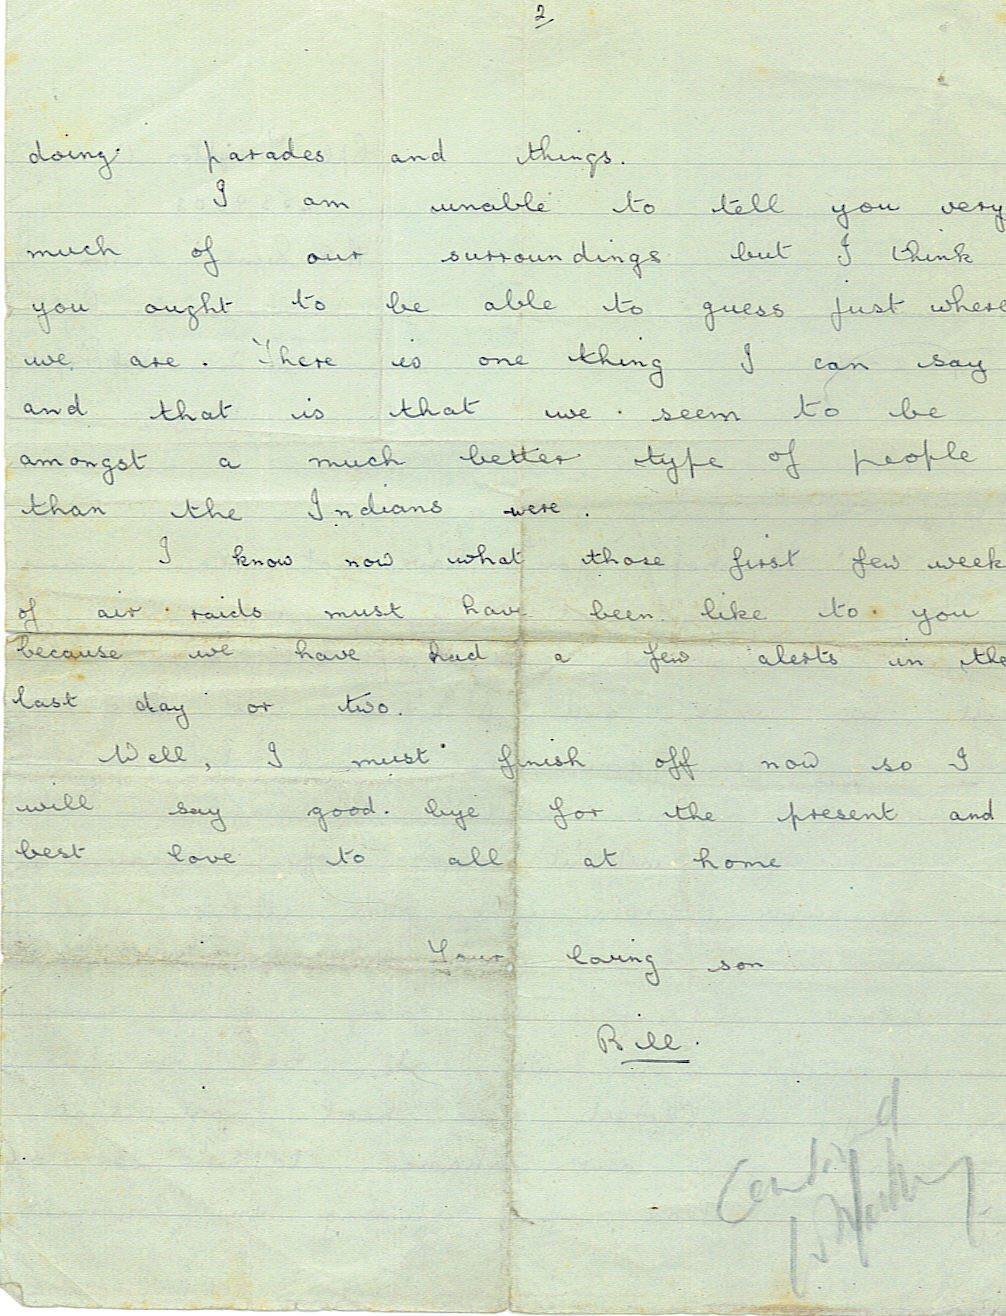 2
doing parades and things.
I am unable to tell you very
much of our surroundings but I think
you ought to be able to guess just where
we are. There is one thing I can say
and that is that we seem to be
amongst a much better type of people
than the Indians were.
I know now what those first few week
of air raids must have been like to you
because we have had a few alerts in the
last day or two.
Well, I must finish off now so I
will say good. bye for the present and
best love to all at home
Your loving son
Bill.